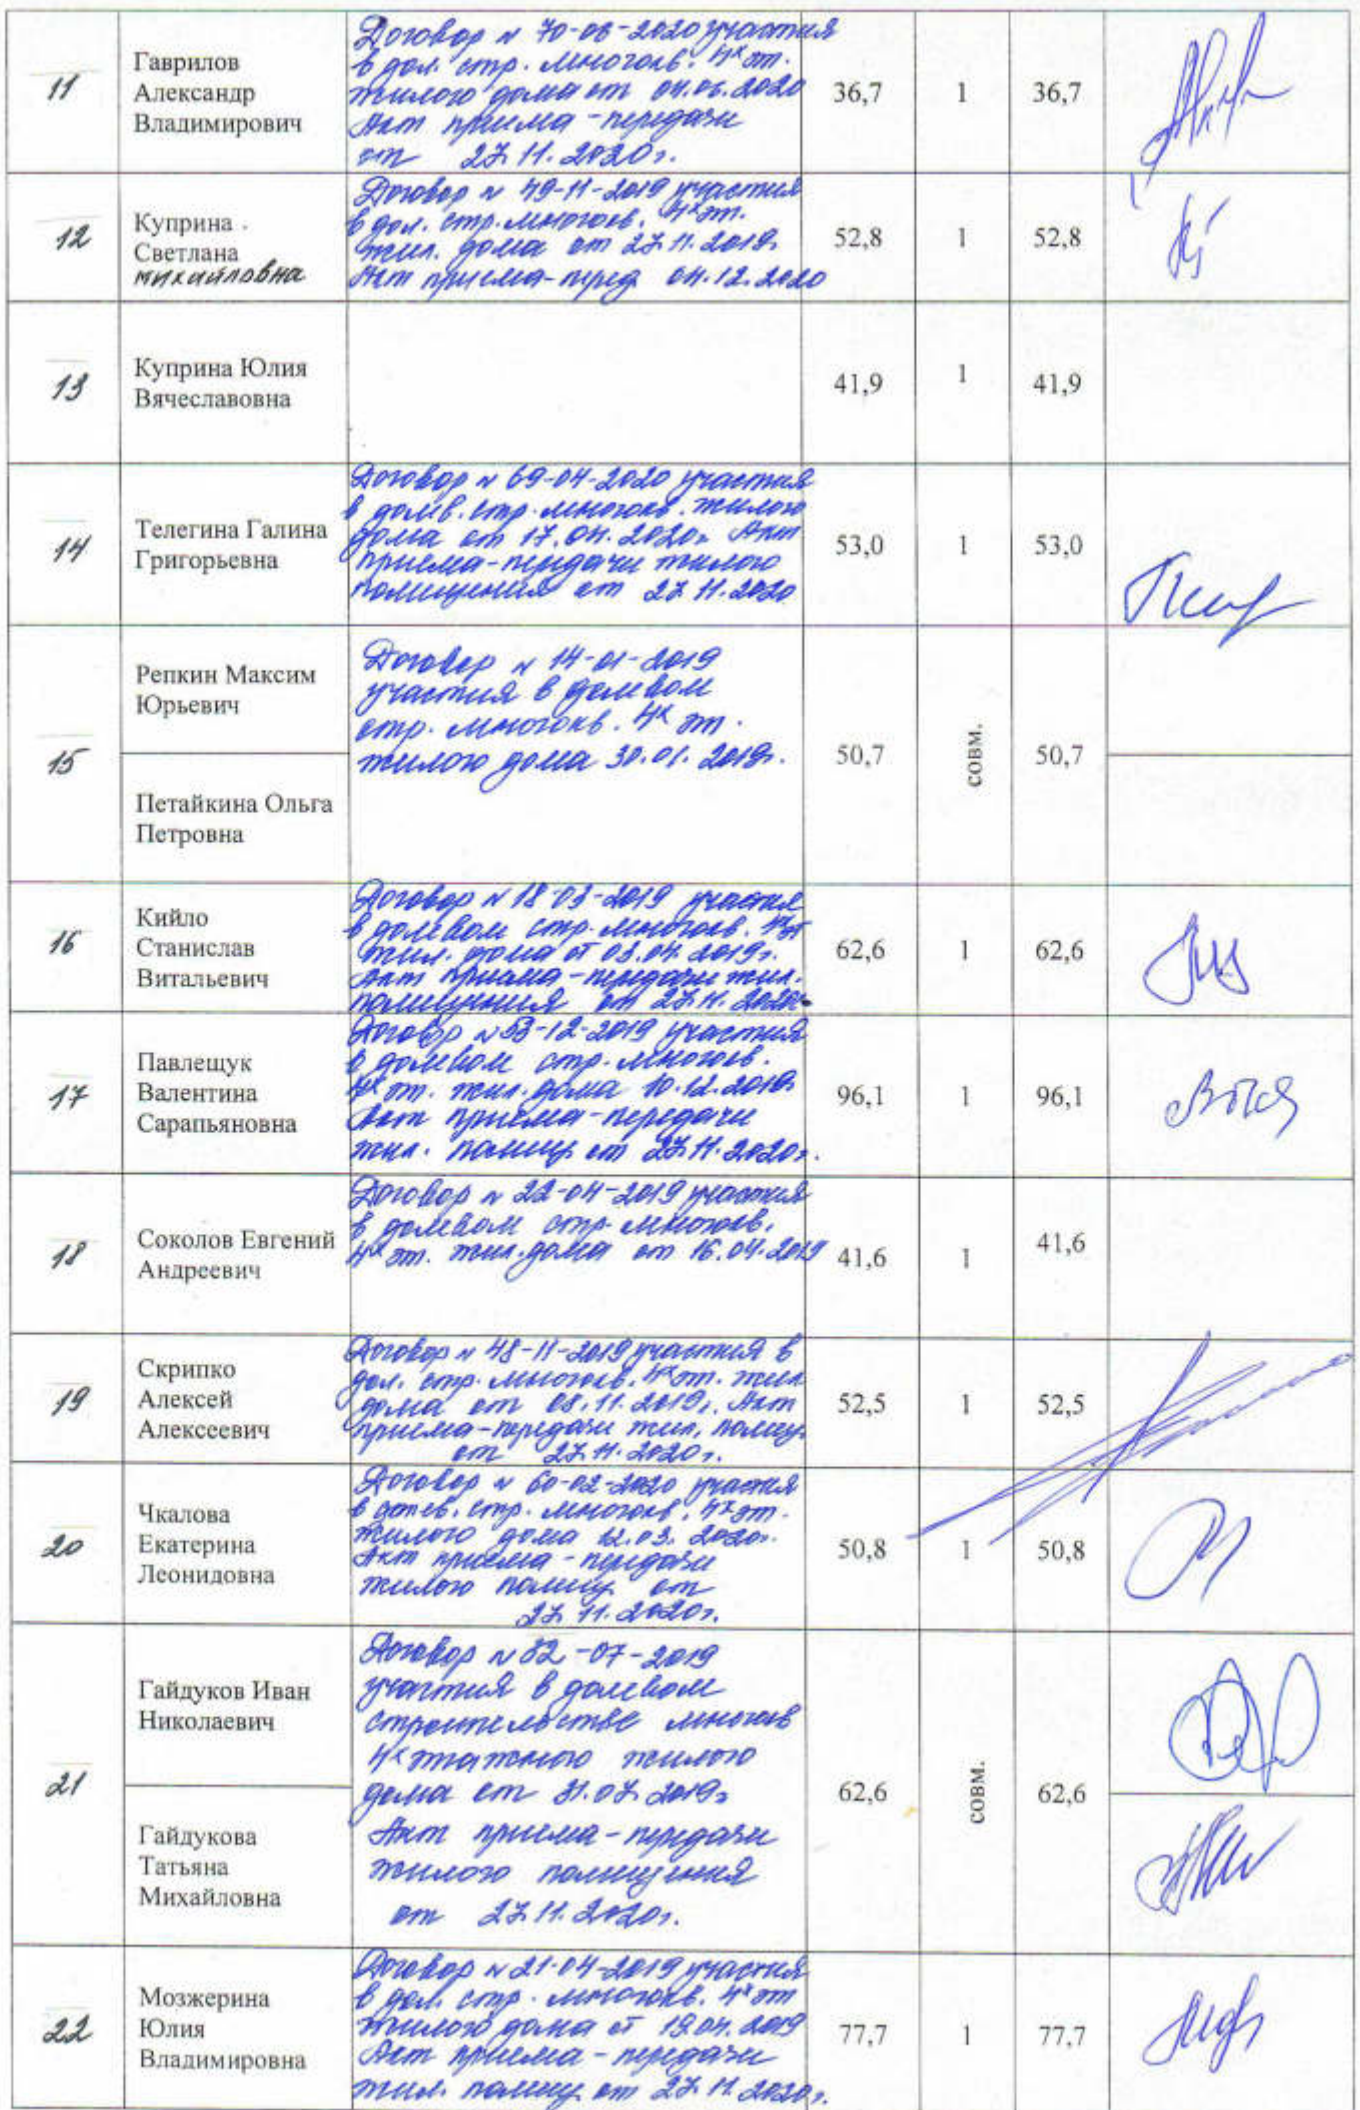 11
Гаврилов
Александр
Владимирович
Договор № 70-06-2020 участия
в дол. стр. многокв. 4х эт.
жилого дома от 04.06.2020
Акт приема-передачи
от 27.11.2020г.
36,7
1
36,7
12
Куприна
Светлана
михайловна
Договор № 49-11-2019 участия
в дол. стр. многокв. 4х эт.
жил. дома от 27.11.2019г.
Акт приема-перед 04.12.2020
52,8
1
52,8
13
Куприна Юлия
Вячеславовна
41,9
1
41,9
14
Телегина Галина
Григорьевна
Договор № 69-04-2020 участия
в долев. стр. многокв. жилого
дома от 17.04.2020г. Акт
приема-передачи жилого
помещения от 27.11.2020
53,0
1
53,0
15
Репкин Максим
Юрьевич
Петайкина Ольга
Петровна
Договор № 14-01-2019
участия в долевом
стр. многокв. 4х эт.
жилого дома 30.01.2019г.
50,7
совм.
50,7
16
Кийло
Станислав
Витальевич
Договор № 18-03-2019 участия
в долевом стр. многокв. 4х эт
жил. дома от 03.04.2019г.
Акт приема-передачи жил.
помещения от 27.11.2020г.
62,6
1
62,6
17
Павлещук
Валентина
Сарапьяновна
Договор № 53-12-2019 участия
в долевом стр. многокв.
4х эт. жил. дома 10.12.2019г.
Акт приема-передачи
жил. помещ. от 27.11.2020г.
96,1
1
96,1
18
Соколов Евгений
Андреевич
Договор № 22-04-2019 участия
в долевом стр. многокв.
4х эт. жил. дома от 16.04.2019
41,6
1
41,6
19
Скрипко
Алексей
Алексеевич
Договор № 48-11-2019 участия в
дол. стр. многокв. 4х эт. жил
дома от 08.11.2019г. Акт
приема-передачи жил. помещ.
от 27.11.2020г.
52,5
1
52,5
20
Чкалова
Екатерина
Леонидовна
Договор № 60-02-2020 участия
в долев. стр. многокв. 4х эт.
жилого дома 12.03.2020г.
Акт приема-передачи
жилого помещ. от
27.11.2020г.
50,8
1
50,8
21
Гайдуков Иван
Николаевич
Гайдукова
Татьяна
Михайловна
Договор № 32-07-2019
участия в долевом
строительстве многокв
4х этажного жилого
дома от 31.07.2019г
Акт приема-передачи
жилого помещения
от 27.11.2020г.
62,6
совм.
62,6
22
Мозжерина
Юлия
Владимировна
Договор № 21-04-2019 участия
в дол. стр. многокв. 4х эт
жилого дома от 19.04.2019
Акт приема-передачи
жил. помещ от 27.11.2020г.
77,7
1
77,7